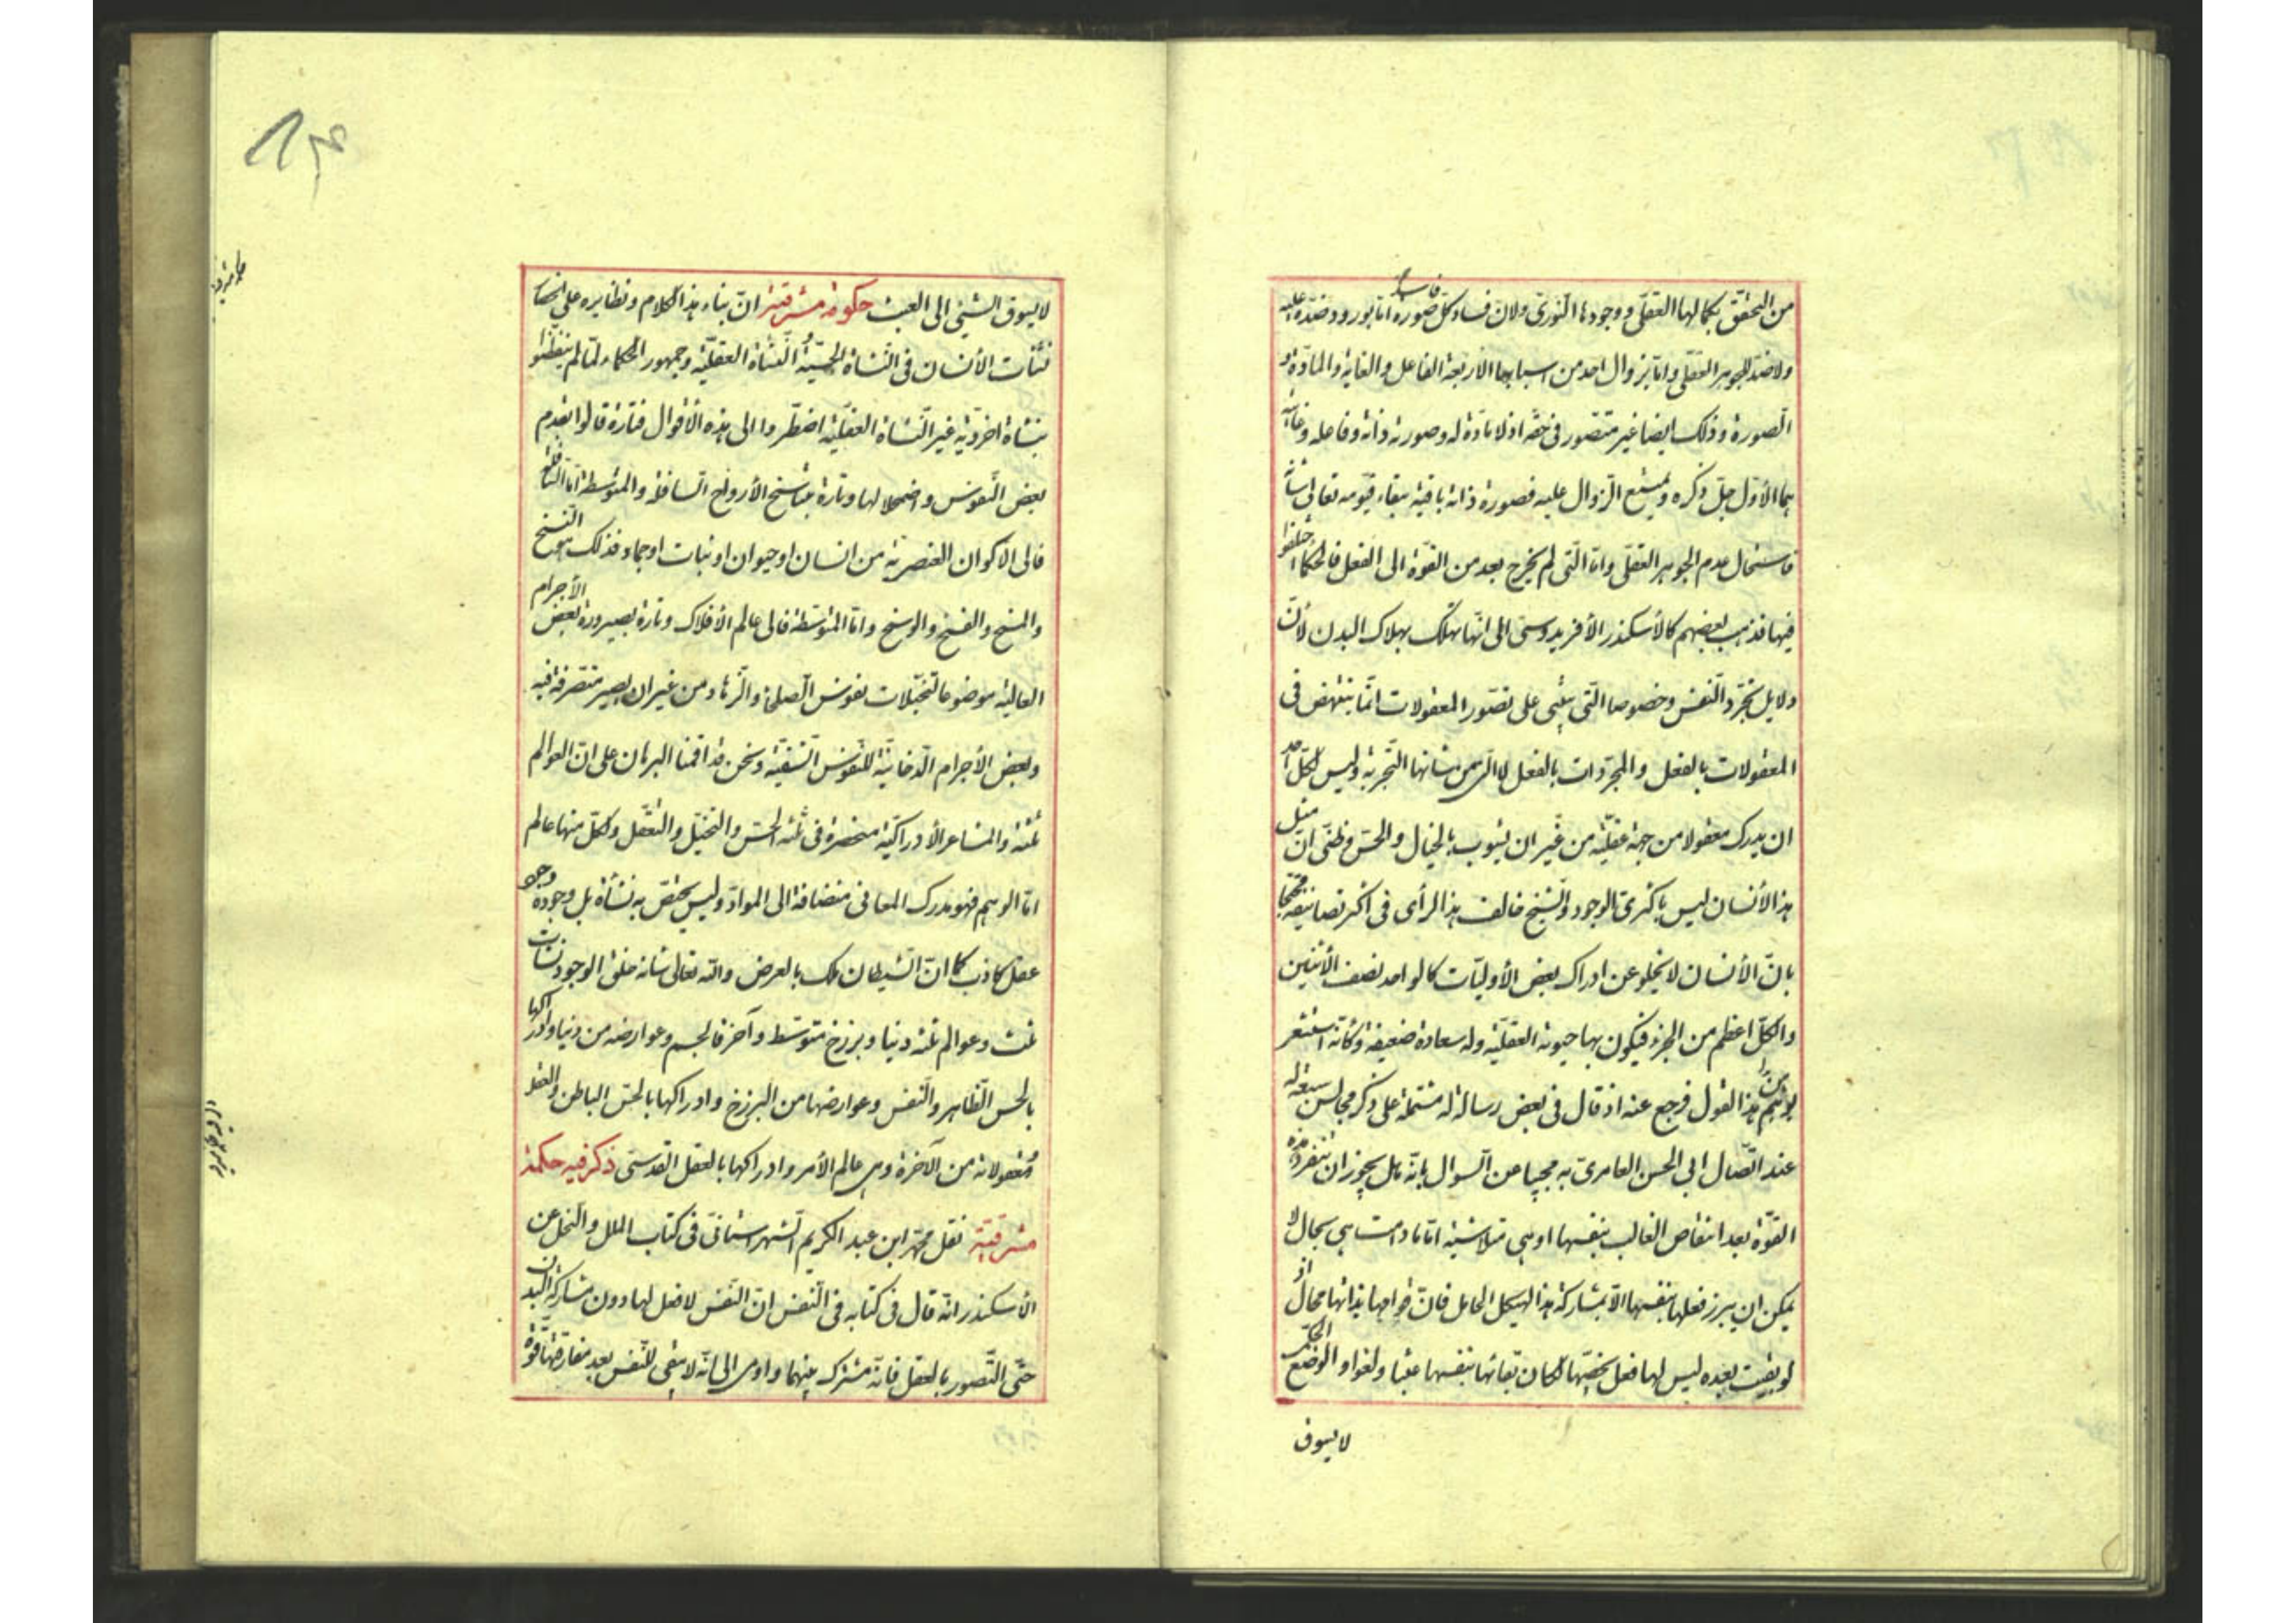 من التحقق بكمالها العقلى ووجودها النورى ولان فساد كل صورة فاسدة اما بورود ضده عليه
ولا ضد للجوهر العقلى واما بزوال احد من اسبابها الاربعة الفاعل والغاية والمادة و
الصورة وذلك ايضا غير متصور فى حقه اذ لا مادة له وصورته ذاته وفاعله وغايته
هما الاول جل ذكره ويمتنع الزوال عليه فصورة ذاته باقية ببقاء قيومه تعالى شانه
فاستحال عدم الجوهر العقلى واما التى لم يخرج بعد من القوة الى الفعل فالحكماء اختلفوا
فيها فذهب بعضهم كالأسكندر الأفريدوسى الى انها تهلك بهلاك البدن لأن
دلايل تجرد النفس وخصوصا التى يبتنى على تصور المعقولات انما ينتهض فى
المعقولات بالفعل والمجردات بالفعل لا التى من شانها التجربة وليس لكل احد
ان يدرك معقولا من جهة عقلية من غير ان يشوب بالخيال والحس وظنى ان مثل
هذا الأنسان ليس باكثرى الوجود والشيخ خالف هذا الرأى فى اكثر تصانيفه محتجا
بان الأنسان لا يخلو عن ادراك بعض الأوليات كالواحد نصف الأثنين
والكل اعظم من الجزء فيكون بها حيوته العقلية وله سعادة ضعيفة وكأنه استشعر
بوهن هذا القول فرجع عنه اذ قال فى بعض رسالة له مشتملة على ذكر مجالس سبعة له
عند اتصال ابى الحسن العامرى به مجيبا عن السوال بانه هل يجوز ان تنفرد هذه
القوة بعد انتقاص الغالب بنفسها او هى متلاشية اما ما دامت هى بحال لا
يمكن ان يبرز فعلها بنفسها الا بمشاركة هذا الهيكل الحامل فان قوامها بذاتها محال اذ
لو بقيت بعده ليس لها فعل يخصها لكان بقائها بنفسها عبثا ولغوا والوضع الحكمى
لا يسوق
لا يسوق الشيئ الى العبث حكومة مشرقية ان بناء هذا الكلام ونظايره على انحصار
نشأت الأنسان فى النشاة الحسية والنشاة العقلية وجمهور الحكماء لما لم يتفطنوا
بنشاة اخروية غير النشاة العقلية اضطروا الى هذه الأقوال فتارة قالوا بعدم
بعض النفوس واضمحلالها وتارة بتناسخ الأرواح السافلة والمتوسطة اما السافلة
فالى الاكوان العنصرية من انسان او حيوان او نبات او جماد فذلك هو النسخ
والمسخ والفسخ والرسخ واما المتوسطة فالى عالم الأفلاك وتارة بصيرورة بعض الأجرام
العالية موضوعا لتخيلات نفوس الصلحاء والزهاد من غير ان يصير متصرفة فيه
وبعض الأجرام الدخانية للنفوس الشقية ونحن قد اقمنا البرهان على ان العوالم
ثلثة والمشاعر الأدراكية منحصرة فى ثلثة الحس والتخيل والتعقل ولكل منها عالم
اما الوهم فهو مدرك المعانى منضافة الى المواد وليس يختص به نشأة بل وجوده وجود
عقل كاذب كما ان الشيطان ملك بالعرض والله تعالى شانه خلق الوجود نشأت
ثلث وعوالم ثلثة دنيا وبرزخ متوسط وآخرة فالجسم وعوارضه من دنيا وادراكها
بالحس الظاهر والنفس وعوارضها من البرزخ وادراكها بالحس الباطن والعقل
ومعقولاته من الآخرة وهى عالم الأمر وادراكها بالعقل القدسى ذكر فيه حكمة
مشرقية نقل محمد ابن عبد الكريم الشهرستانى فى كتاب الملل والنحل عن
الأسكندر انه قال فى كتابه فى النفس ان النفس لا فعل لها دون مشاركة البدن
حتى التصور بالعقل فانه مشترك بينهما واومى الى انه لا يبقى للنفس بعد مفارقتها قوة